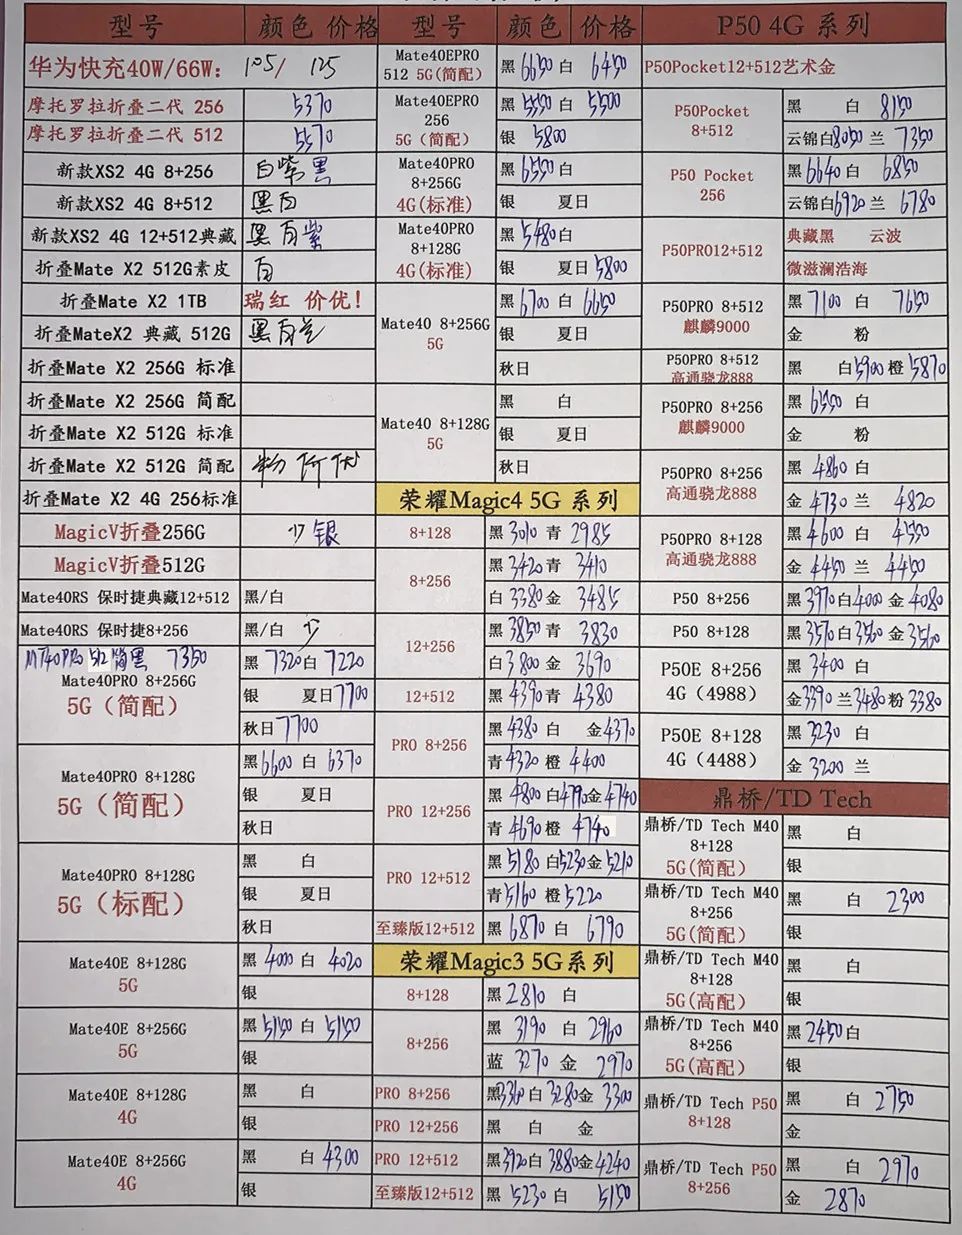 型号 颜色 价格
华为快充40W/66W: 105/ 125
摩托罗拉折叠二代 256 5370
摩托罗拉折叠二代 512 5570
新款XS2 4G 8+256 白紫黑
新款XS2 4G 8+512 黑白
新款XS2 4G 12+512典藏 黑白紫
折叠Mate X2 512G素皮 白
折叠Mate X2 1TB 瑞红 价优!
折叠MateX2 典藏 512G 黑白兰
折叠Mate X2 256G 标准
折叠Mate X2 256G 简配
折叠Mate X2 512G 标准
折叠Mate X2 512G 简配 粉 价优
折叠Mate X2 4G 256标准
MagicV折叠256G 少 银
MagicV折叠512G
Mate40RS 保时捷典藏12+512 黑/白
Mate40RS 保时捷8+256 黑/白 少
MT40PRO 512 简黑 7350
Mate40PRO 8+256G
5G（简配）
黑 7320 白 7220
银 夏日 7700
秋日 7700
Mate40PRO 8+128G
5G（简配）
黑 6600 白 6370
银 夏日
秋日
Mate40PRO 8+128G
5G（标配）
黑 白
银 夏日
秋日
Mate40E 8+128G
5G
黑 4000 白 4020
银
Mate40E 8+256G
5G
黑 5150 白 5150
银
Mate40E 8+128G
4G
黑 白
银
Mate40E 8+256G
4G
黑 白 4300
银
型号 颜色 价格
Mate40EPRO
512 5G(简配)
黑 6650 白 6450
Mate40EPRO
256
5G（简配）
黑 5550 白 5500
银 5800
Mate40PRO
8+256G
4G(标准)
黑 6550 白
银 夏日
Mate40PRO
8+128G
4G(标准)
黑 5480 白
银 夏日 5800
Mate40 8+256G
5G
黑 6700 白 6650
银 夏日
秋日
Mate40 8+128G
5G
黑 白
银 夏日
秋日
荣耀Magic4 5G 系列
8+128 黑 3010 青 2985
8+256
黑 3420 青 3410
白 3380 金 3485
12+256
黑 3850 青 3830
白 3800 金 3690
12+512 黑 4390 青 4380
PRO 8+256
黑 4380 白 金 4370
青 4320 橙 4400
PRO 12+256
黑 4800 白 4790 金 4740
青 4690 橙 4740
PRO 12+512
黑 5180 白 5230 金 5210
青 5160 橙 5220
至臻版12+512 黑 6870 白 6790
荣耀Magic3 5G系列
8+128 黑 2810 白
8+256
黑 3190 白 2960
蓝 3270 金 2970
PRO 8+256 黑 3360 白 3280 金 3300
PRO 12+256 黑 白 金
PRO 12+512 黑 3920 白 3880 金 4240
至臻版12+512 黑 5230 白 5150
P50 4G 系列
P50Pocket12+512艺术金
P50Pocket
8+512
黑 白 8150
云锦白 8050 兰 7350
P50 Pocket
256
黑 6640 白 6850
云锦白 6920 兰 6780
P50PRO12+512
典藏黑 云波
微滋澜浩海
P50PRO 8+512
麒麟9000
黑 7100 白 7650
金 粉
P50PRO 8+512
高通骁龙888
黑 白 5900 橙 5870
P50PRO 8+256
麒麟9000
黑 6550 白
金 粉
P50PRO 8+256
高通骁龙888
黑 4860 白
金 4730 兰 4820
P50PRO 8+128
高通骁龙888
黑 4600 白 4550
金 4450 兰 4450
P50 8+256 黑 3970 白 4000 金 4080
P50 8+128 黑 3570 白 3560 金 3560
P50E 8+256
4G（4988）
黑 3400 白
金 3390 兰 3480 粉 3380
P50E 8+128
4G（4488）
黑 3230 白
金 3200 兰
鼎桥/TD Tech
鼎桥/TD Tech M40
8+128
5G(简配)
黑 白
银
鼎桥/TD Tech M40
8+256
5G(简配)
黑 白 2300
银
鼎桥/TD Tech M40
8+128
5G(高配)
黑 白
银
鼎桥/TD Tech M40
8+256
5G(高配)
黑 2450 白
银
鼎桥/TD Tech P50
8+128
黑 白 2750
金
鼎桥/TD Tech P50
8+256
黑 白 2970
金 2870